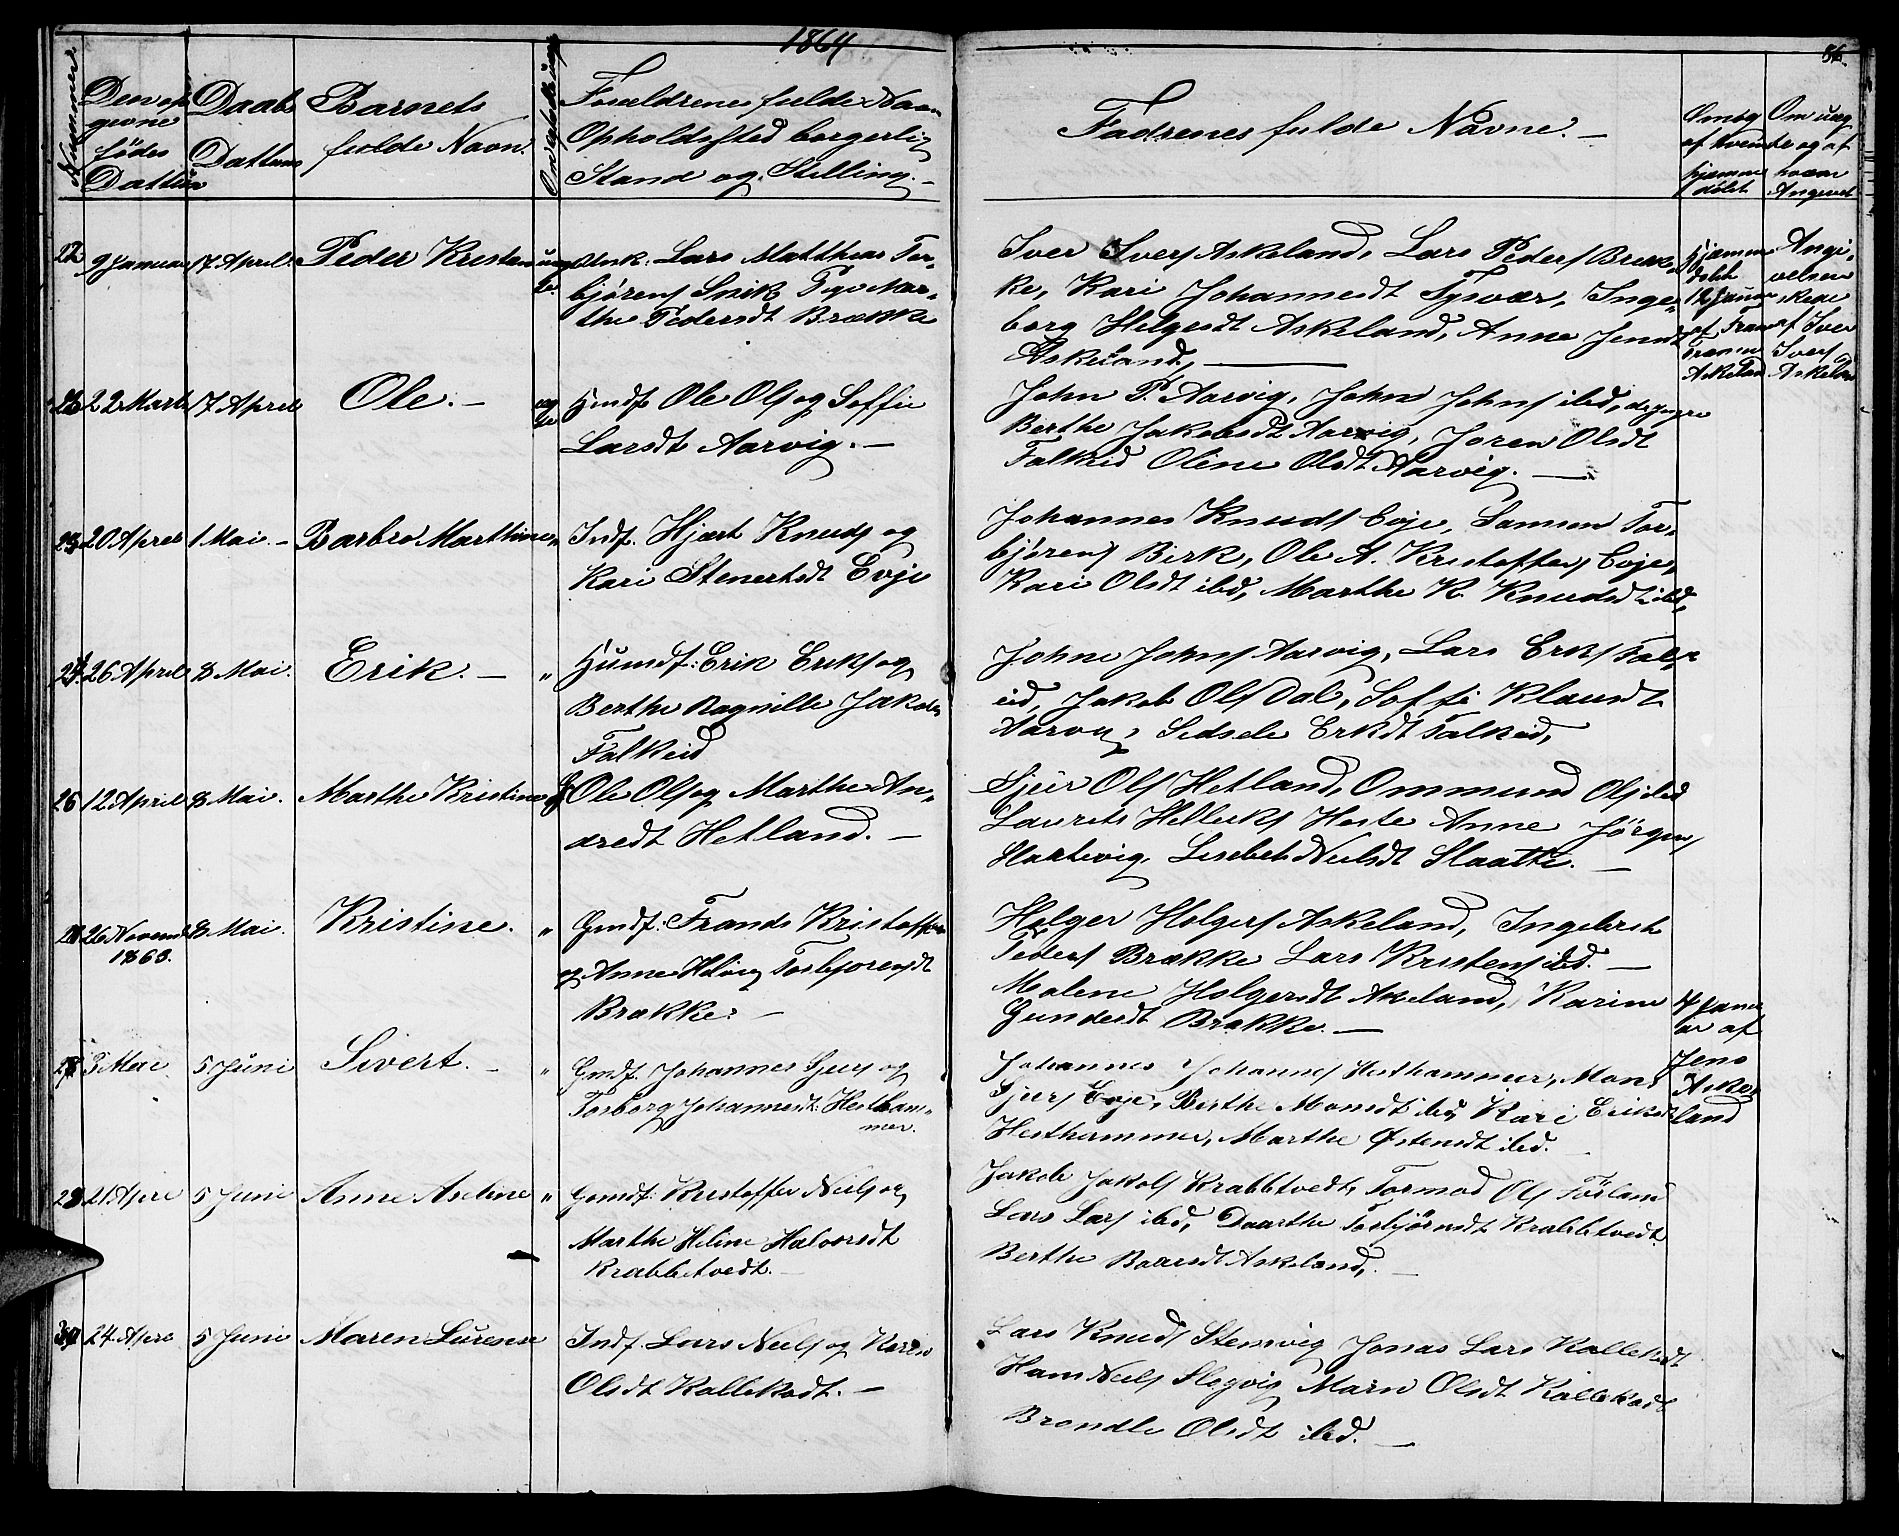 1864
86.
Nummer
Den op
givne
födes
Datum
Daabs
Datums
Barnets
fulde Navn.
Om ægte
Forældrenes fulde Navn
Opholdssted borgerlig
Stand og Stilling. -
Fadrenes fulde Navne. -
af hvem
hjemme
döbt
te og af
hvem
Angivet
22 9 Januar 17 April Peder Kristan
Ungk: Lars Matthias Tor-
björens Snik Pige Mar-
the Pedersdt Brække
Iver Ivers Askeland, Lars Peders Bræk-
ke, Kari Johannesdt Tysvær, Inge-
borg Helgesdt Askeland, Anne Jensdt
Askeland,
Hjemme
döbt
12 Januar
af Frans
Askeland
Angi-
velsen
skeet
af Iver
Ivers
Askeland
22 Marts 17 April Ole. - ægte
Hmdf Ole Ols og Soffie
Larsdt Aarvig. -
John P. Aarvig, John Johns ibd,
Berthe Jakobsdt Aarvig, Joren Olsdt
Falkeid Oline Olsdt Aarvig. -
20 April 1 Mai. - Barbro Marthine "
Indf. Hjert Knuds og
Kari Stenertsdt Evje
Johannes Knuds Evje, Samson Tor-
björens Birk, Ole A. Kristoffers Evje,
Kari Olsdt ibd, Marthe K. Knudsdt ibd,
26 April 8 Mai. Erik. - "
Huusmdf: Erik Eriks og
Berthe Ragnille Jakobs
Falkeid
Johne Johns Aarvig, Lars Erks Falk-
eid, Jakob Ols Dal, Soffi Klausdt
Aarvig, Sidsele Erksdt Falkeid,
26 12 April 8 Mai. Marthe Kristine
Ole Ols og Marthe An-
dredt Hetland. -
Sjur Ols Hetland, Ommund Ols ibd
Laurits Hellicks Heste Anne Jörgens
Hartevig, Lisebet Neilsdt Slaatte. -
26 Novemb 8 Mai. Kristine. "
1863.
Gmdf: Frands Kristoffers
og Anne Helvig Torbjorensdt
Brække. -
Holger Holgers Askeland, Ingebret
Peders Brække Lars Kristens ibd. -
Malene Holgersdt Askeland, Karine
Gundersdt Brække. -
4 Janu
ar af
Jens
Aske-
land
3 Mai 5 Juni Sivert. - "
Gmdf. Johannes Sjurs og
Torborg Johannesdt: Hestham-
mer.
Johannes Johannes Hesthammer, Mons
Sjurs Evje, Berthe Monsdt ibd, Kari Eriksdt
Hesthammer, Marthe Østensdt ibd.
21 Apri 5 Juni Anne Asline "
Gmdf: Kristoffer Neils og
Marthe Heline Halvorsdt
Krabbetvedt. -
Jakob Jakobs Krabbetvedt, Tormod Ols Förland
Lars Lars ibd, Daarthe Torbjörnsdt Krabbetvedt.
Berthe Baardsdt Askeland, -
24. Apri 5 Juni Maren Lurense
Indf. Lars Neils og Karen
Olsdt Kallekodt. -
Lars Knuds Stemvig Jonas Lars Kallekodt
Hans Neils Slogvig Marn Olsdt Kallekodt
Brondle Olsdt ibd. -